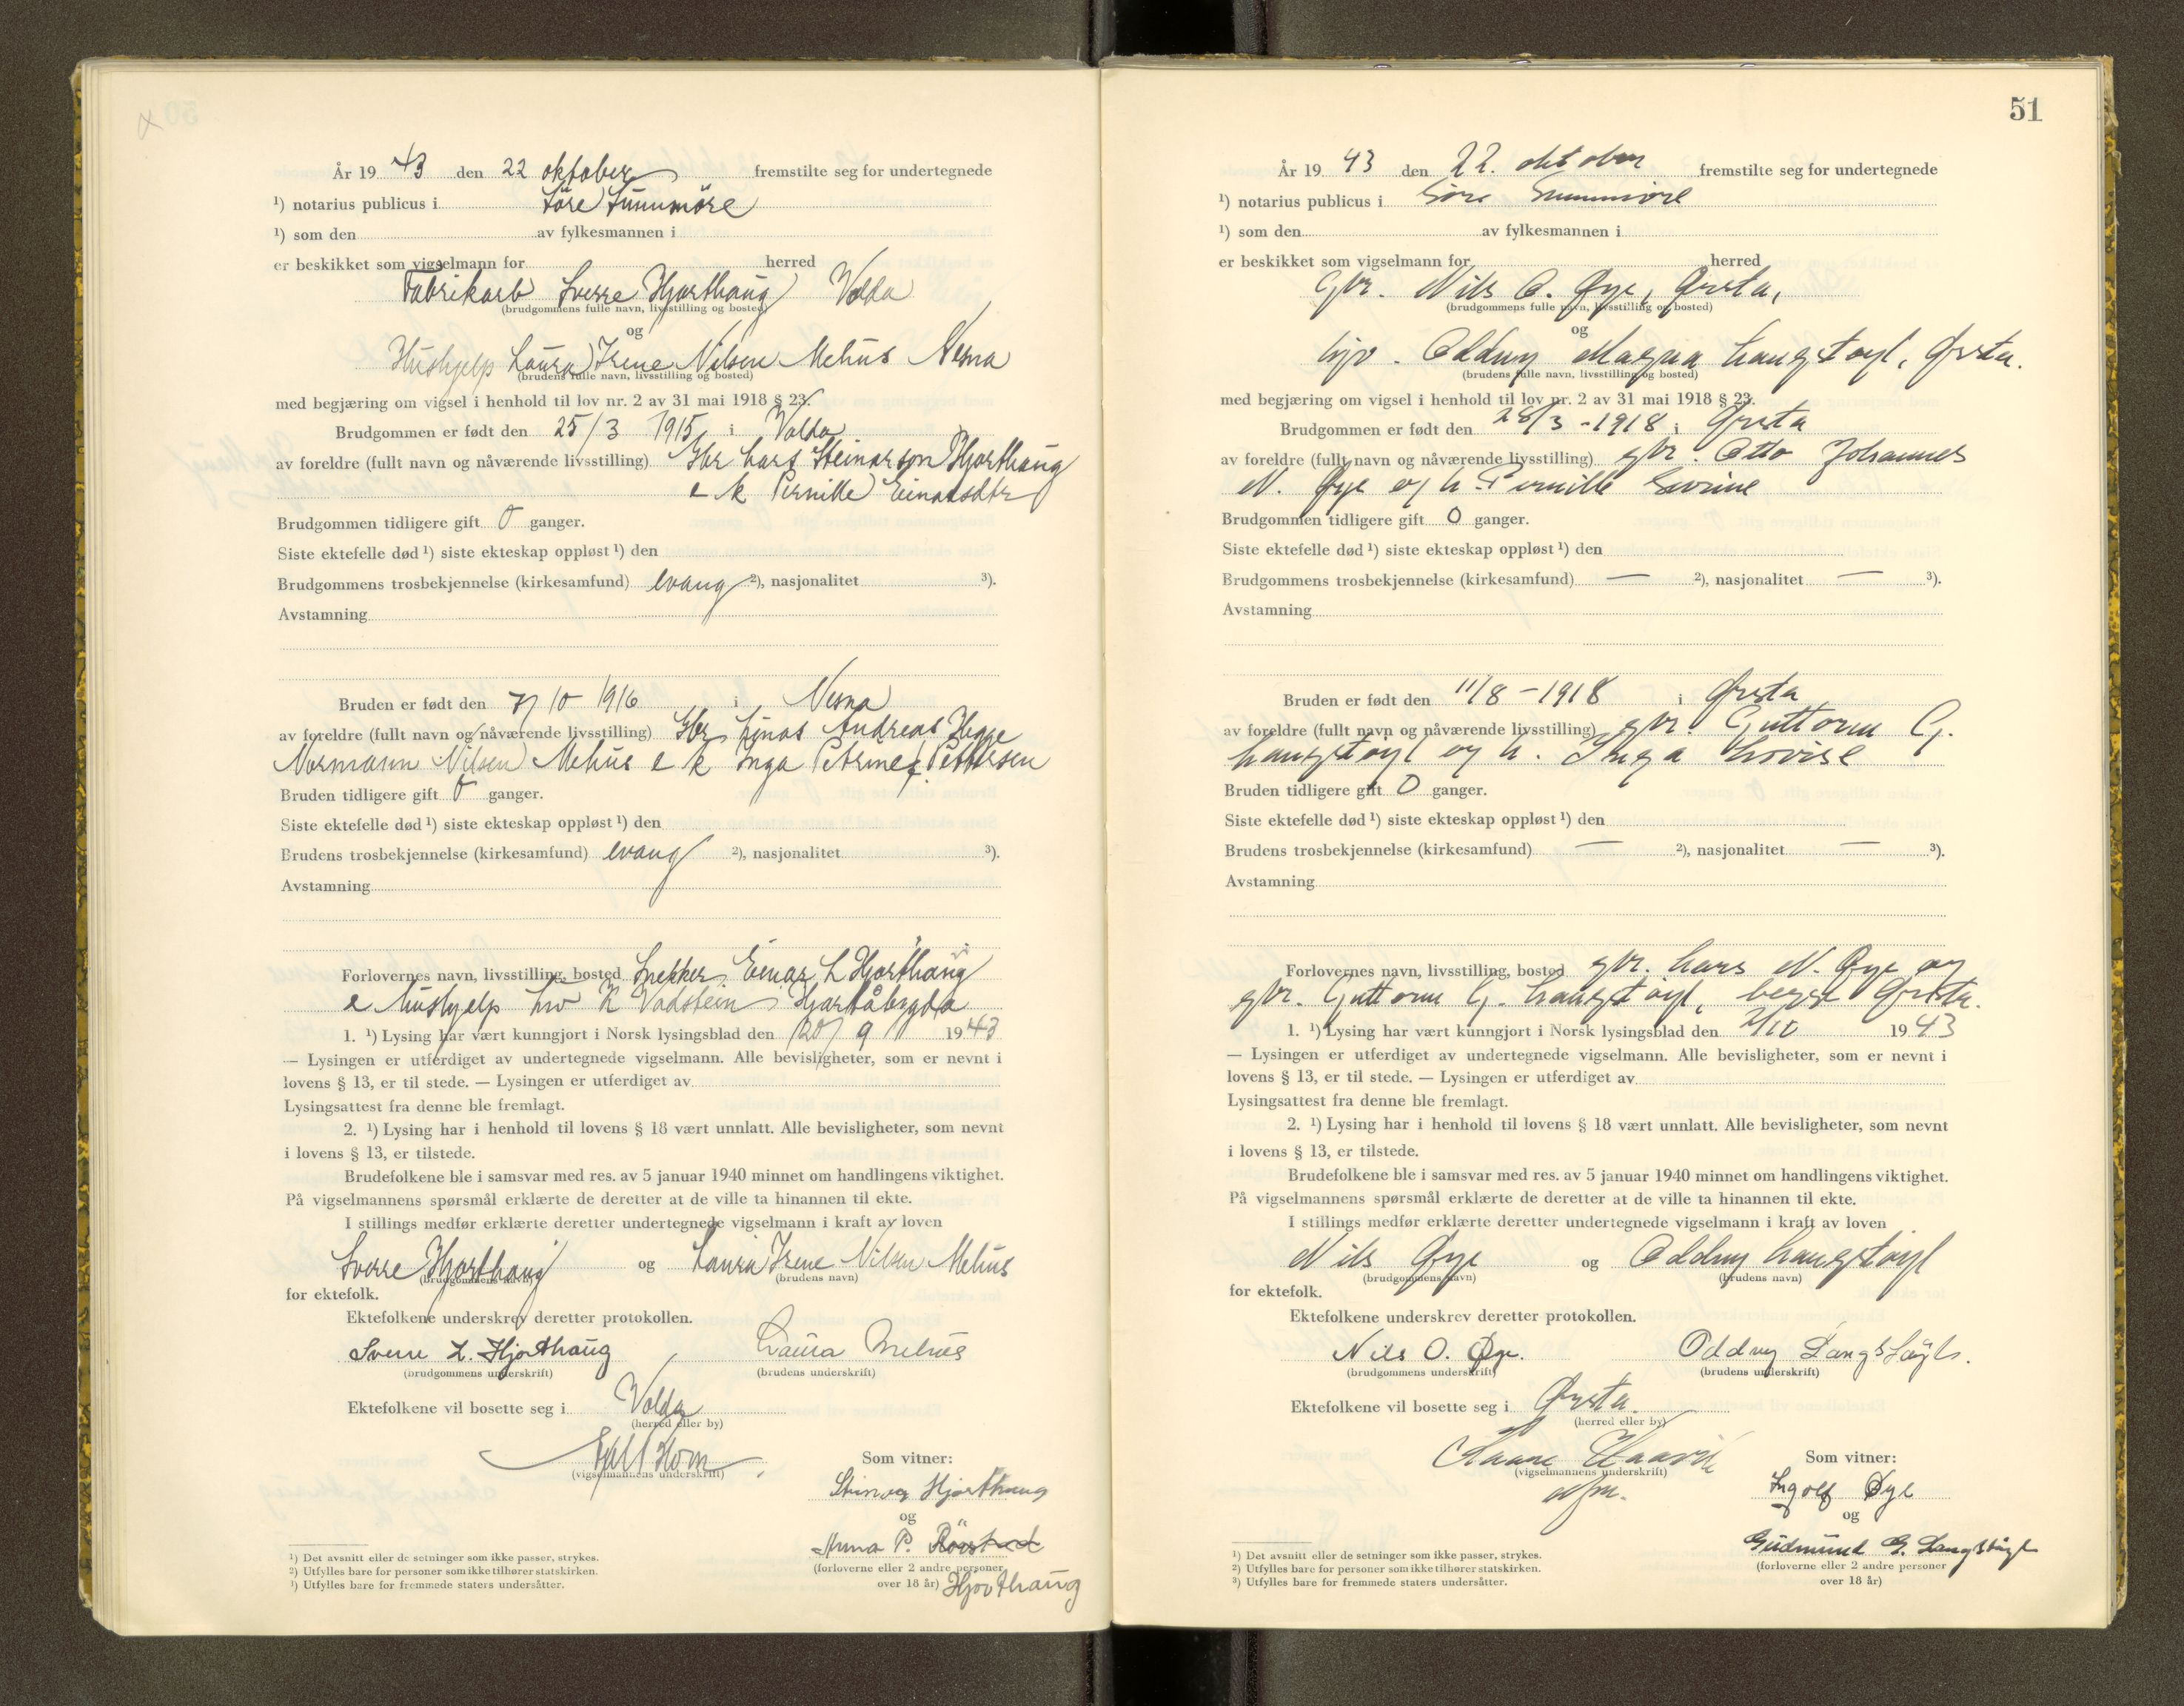 År 19 43 den 22 oktober fremstilte seg for undertegnede
¹) notarius publicus i Söre Sunnmöre
¹) som den av fylkesmannen i
er beskikket som vigselmann for herred
Fabrikarb Sverre Hjorthaug Volda
(brudgommens fulle navn, livsstilling og bosted)
og
Hushjelp Laura Irene Nilsen Mehus Nesna
(brudens fulle navn, livsstilling og bosted)
med begjæring om vigsel i henhold til lov nr. 2 av 31 mai 1918 § 23.
Brudgommen er født den 25/3 1915 i Volda
av foreldre (fullt navn og nåværende livsstilling) Gbr Lars Steinarson Hjorthaug
e k Pernille Einarsdtr
Brudgommen tidligere gift 0 ganger.
Siste ektefelle død ¹) siste ekteskap oppløst ¹) den
Brudgommens trosbekjennelse (kirkesamfund) evang ²), nasjonalitet ³).
Avstamning
Bruden er født den 7/10 1916 i Nesna
av foreldre (fullt navn og nåværende livsstilling) Gbr Andreas Hegge
Normann Nilsen Mehus e k Inga Petrine f Pettersen
Bruden tidligere gift 0 ganger.
Siste ektefelle død ¹) siste ekteskap oppløst ¹) den
Brudens trosbekjennelse (kirkesamfund) evang ²), nasjonalitet ³).
Avstamning
Forlovernes navn, livsstilling, bosted Snekker Einar L Hjorthaug
e hushjelp Liv K Vadstein Hjartåbygda
1. ¹) Lysing har vært kunngjort i Norsk lysingsblad den 20/9 1943
— Lysingen er utferdiget av undertegnede vigselmann. Alle bevisligheter, som er nevnt i
lovens § 13, er til stede. — Lysingen er utferdiget av
Lysingsattest fra denne ble fremlagt.
2. ¹) Lysing har i henhold til lovens § 18 vært unnlatt. Alle bevisligheter, som nevnt
i lovens § 13, er tilstede.
Brudefolkene ble i samsvar med res. av 5 januar 1940 minnet om handlingens viktighet.
På vigselmannens spørsmål erklærte de deretter at de ville ta hinannen til ekte.
I stillings medfør erklærte deretter undertegnede vigselmann i kraft av loven
Sverre Hjorthaug og Laura Irene Nilsen Mehus
(brudgommens navn) (brudens navn)
for ektefolk.
Ektefolkene underskrev deretter protokollen.
Sverre L. Hjorthaug Laura Mehus
(brudgommens underskrift) (brudens underskrift)
Ektefolkene vil bosette seg i Volda
(herred eller by)
(vigselmannens underskrift)
Som vitner:
Steinar Hjorthaug
og
Anna P. Rövstad
(forloverne eller 2 andre personer
over 18 år) Hjorthaug
¹) Det avsnitt eller de setninger som ikke passer, strykes.
²) Utfylles bare for personer som ikke tilhører statskirken.
³) Utfylles bare for fremmede staters undersåtter.
51
År 19 43 den 22. oktober fremstilte seg for undertegnede
¹) notarius publicus i Søre Sunnmøre
¹) som den av fylkesmannen i
er beskikket som vigselmann for herred
Gbr. Nils O. Øye, Ørsta,
(brudgommens fulle navn, livsstilling og bosted)
og
Oddny Magna Langstøyl, Ørsta.
(brudens fulle navn, livsstilling og bosted)
med begjæring om vigsel i henhold til lov nr. 2 av 31 mai 1918 § 23.
Brudgommen er født den 28/3 - 1918 i Ørsta
av foreldre (fullt navn og nåværende livsstilling) gbr. Otto Johannes
N. Øye og h. Pernille Sevrine
Brudgommen tidligere gift 0 ganger.
Siste ektefelle død ¹) siste ekteskap oppløst ¹) den
Brudgommens trosbekjennelse (kirkesamfund) — ²), nasjonalitet — ³).
Avstamning
Bruden er født den 11/8 - 1918 i Ørsta
av foreldre (fullt navn og nåværende livsstilling) gbr. Guttorm G.
Langstøyl og h. Inga Lovise
Bruden tidligere gift 0 ganger.
Siste ektefelle død ¹) siste ekteskap oppløst ¹) den
Brudens trosbekjennelse (kirkesamfund) — ²), nasjonalitet — ³).
Avstamning
Forlovernes navn, livsstilling, bosted gbr. Lars N. Øye og
gbr. Guttorm G. Langstøyl, begge Ørsta.
1. ¹) Lysing har vært kunngjort i Norsk lysingsblad den 2/10 1943
— Lysingen er utferdiget av undertegnede vigselmann. Alle bevisligheter, som er nevnt i
lovens § 13, er til stede. — Lysingen er utferdiget av
Lysingsattest fra denne ble fremlagt.
2. ¹) Lysing har i henhold til lovens § 18 vært unnlatt. Alle bevisligheter, som nevnt
i lovens § 13, er tilstede.
Brudefolkene ble i samsvar med res. av 5 januar 1940 minnet om handlingens viktighet.
På vigselmannens spørsmål erklærte de deretter at de ville ta hinannen til ekte.
I stillings medfør erklærte deretter undertegnede vigselmann i kraft av loven
Nils Øye og Oddny Langstøyl
(brudgommens navn) (brudens navn)
for ektefolk.
Ektefolkene underskrev deretter protokollen.
Nils O. Øye. Oddny Langstøyl.
(brudgommens underskrift) (brudens underskrift)
Ektefolkene vil bosette seg i Ørsta.
(herred eller by)
(vigselmannens underskrift)
Som vitner:
Ingolf Øye
og
Gudmund G. Langstøyl
(forloverne eller 2 andre personer
over 18 år)
¹) Det avsnitt eller de setninger som ikke passer, strykes.
²) Utfylles bare for personer som ikke tilhører statskirken.
³) Utfylles bare for fremmede staters undersåtter.